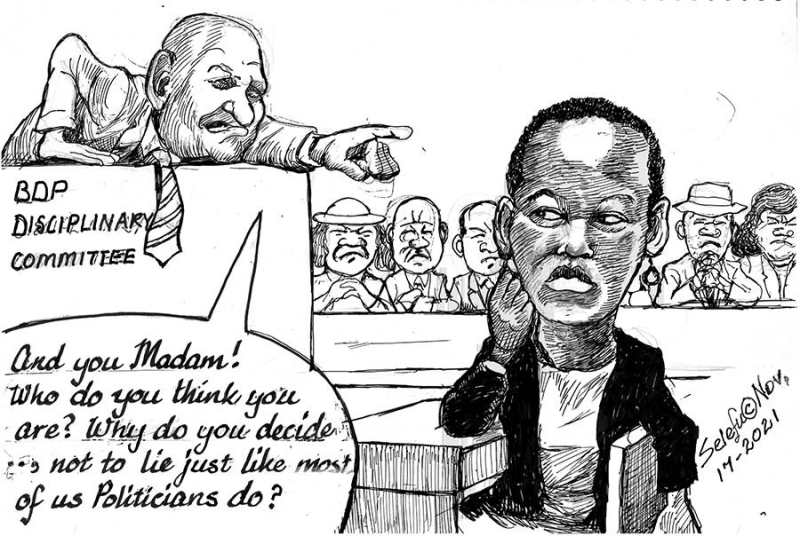 BDP
DISCIPLINARY
COMMITTEE
And you Madam!
Who do you think you
are? Why do you decide
... not to lie just like most
of us Politicians do?
Selefu©Nov.
17-2021